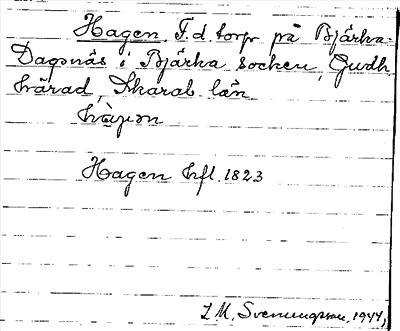 Hagen F.d. torp på Bjärka-
Dagsnäs i Bjärka socken, Gudh.
härad, Skarab. län
hàgən
Hagen hfl. 1823
L M, Svenungsson, 1944,